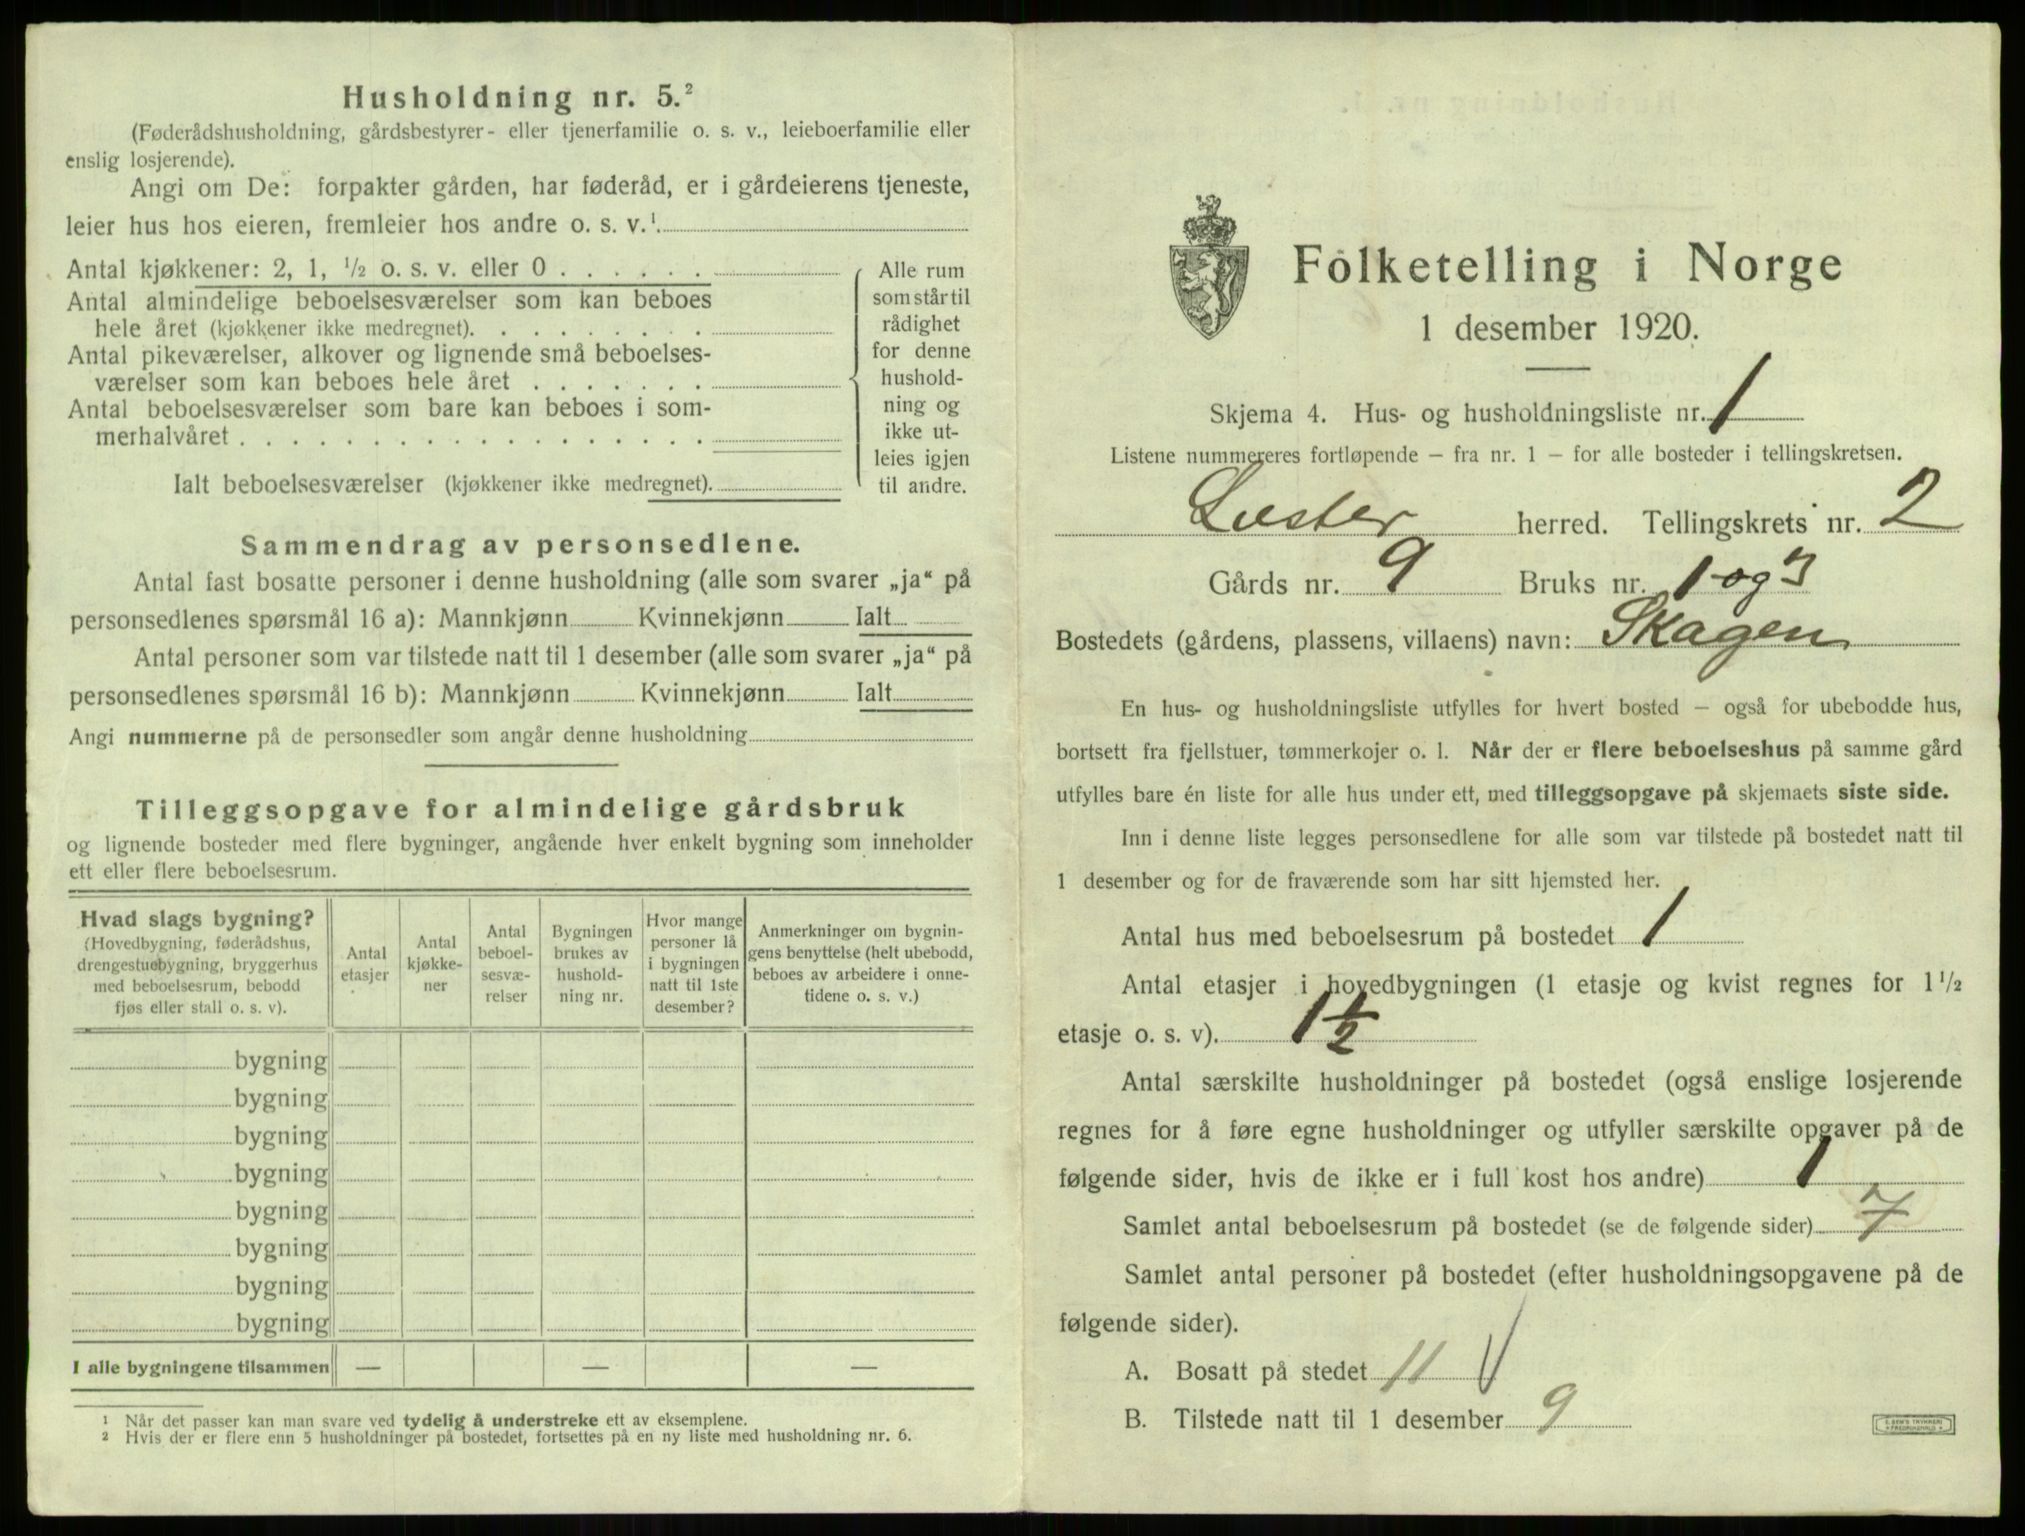 Husholdning nr. 5.²
(Føderådshusholdning, gårdsbestyrer- eller tjenerfamilie o. s. v., leieboerfamilie eller
enslig losjerende).
Angi om De: forpakter gården, har føderåd, er i gårdeierens tjeneste,
leier hus hos eieren, fremleier hos andre o. s. v.¹
Antal kjøkkener: 2, 1, ½ o. s. v. eller 0 . . . . . .
Antal almindelige beboelsesværelser som kan beboes
hele året (kjøkkener ikke medregnet). . . . . . . . .
Antal pikeværelser, alkover og lignende små beboelses-
værelser som kan beboes hele året . . . . . . .
Antal beboelsesværelser som bare kan beboes i som-
merhalvåret . . . . . . . . . . . . . . . . . .
Ialt beboelsesværelser (kjøkkener ikke medregnet).
Alle rum
som står til
rådighet
for denne
hushold-
ning og
ikke ut-
leies igjen
til andre.
Sammendrag av personsedlene.
Antal fast bosatte personer i denne husholdning (alle som svarer „ja“ på
personsedlenes spørsmål 16 a): Mannkjønn Kvinnekjønn Ialt
Antal personer som var tilstede natt til 1 desember (alle som svarer „ja“ på
personsedlenes spørsmål 16 b): Mannkjønn Kvinnekjønn Ialt
Angi nummerne på de personsedler som angår denne husholdning
Tilleggsopgave for almindelige gårdsbruk
og lignende bosteder med flere bygninger, angående hver enkelt bygning som inneholder
ett eller flere beboelsesrum.
Hvad slags bygning?
(Hovedbygning, føderådshus,
drengestuebygning, bryggerhus
med beboelsesrum, bebodd
fjøs eller stall o. s. v).
Antal
etasjer
Antal
kjøkke-
ner
Antal
beboel-
sesvæ-
relser
Bygningen
brukes av
hushold-
ning nr.
Hvor mange
personer lå
i bygningen
natt til 1ste
desember?
Anmerkninger om bygnin-
gens benyttelse (helt ubebodd,
beboes av arbeidere i onne-
tidene o. s. v.)
bygning
bygning
bygning
bygning
bygning
bygning
bygning
bygning
I alle bygningene tilsammen — — —
¹ Når det passer kan man svare ved tydelig å understreke ett av eksemplene.
² Hvis der er flere enn 5 husholdninger på bostedet, fortsettes på en ny liste med husholdning nr. 6.
Folketelling i Norge
1 desember 1920.
Skjema 4. Hus- og husholdningsliste nr. 1
Listene nummereres fortløpende – fra nr. 1 – for alle bosteder i tellingskretsen.
Luster herred. Tellingskrets nr. 2
Gårds nr. 9 Bruks nr. 1 og 3
Bostedets (gårdens, plassens, villaens) navn: Skagen
En hus- og husholdningsliste utfylles for hvert bosted – også for ubebodde hus,
bortsett fra fjellstuer, tømmerkojer o. l. Når der er flere beboelseshus på samme gård
utfylles bare én liste for alle hus under ett, med tilleggsopgave på skjemaets siste side.
Inn i denne liste legges personsedlene for alle som var tilstede på bostedet natt til
1 desember og for de fraværende som har sitt hjemsted her.
Antal hus med beboelsesrum på bostedet 1
Antal etasjer i hovedbygningen (1 etasje og kvist regnes for 1½
etasje o. s. v). 1½
Antal særskilte husholdninger på bostedet (også enslige losjerende
regnes for å føre egne husholdninger og utfyller særskilte opgaver på de
følgende sider, hvis de ikke er i full kost hos andre) 1
Samlet antal beboelsesrum på bostedet (se de følgende sider) 7
Samlet antal personer på bostedet (efter husholdningsopgavene på de
følgende sider).
A. Bosatt på stedet 11
B. Tilstede natt til 1 desember 9